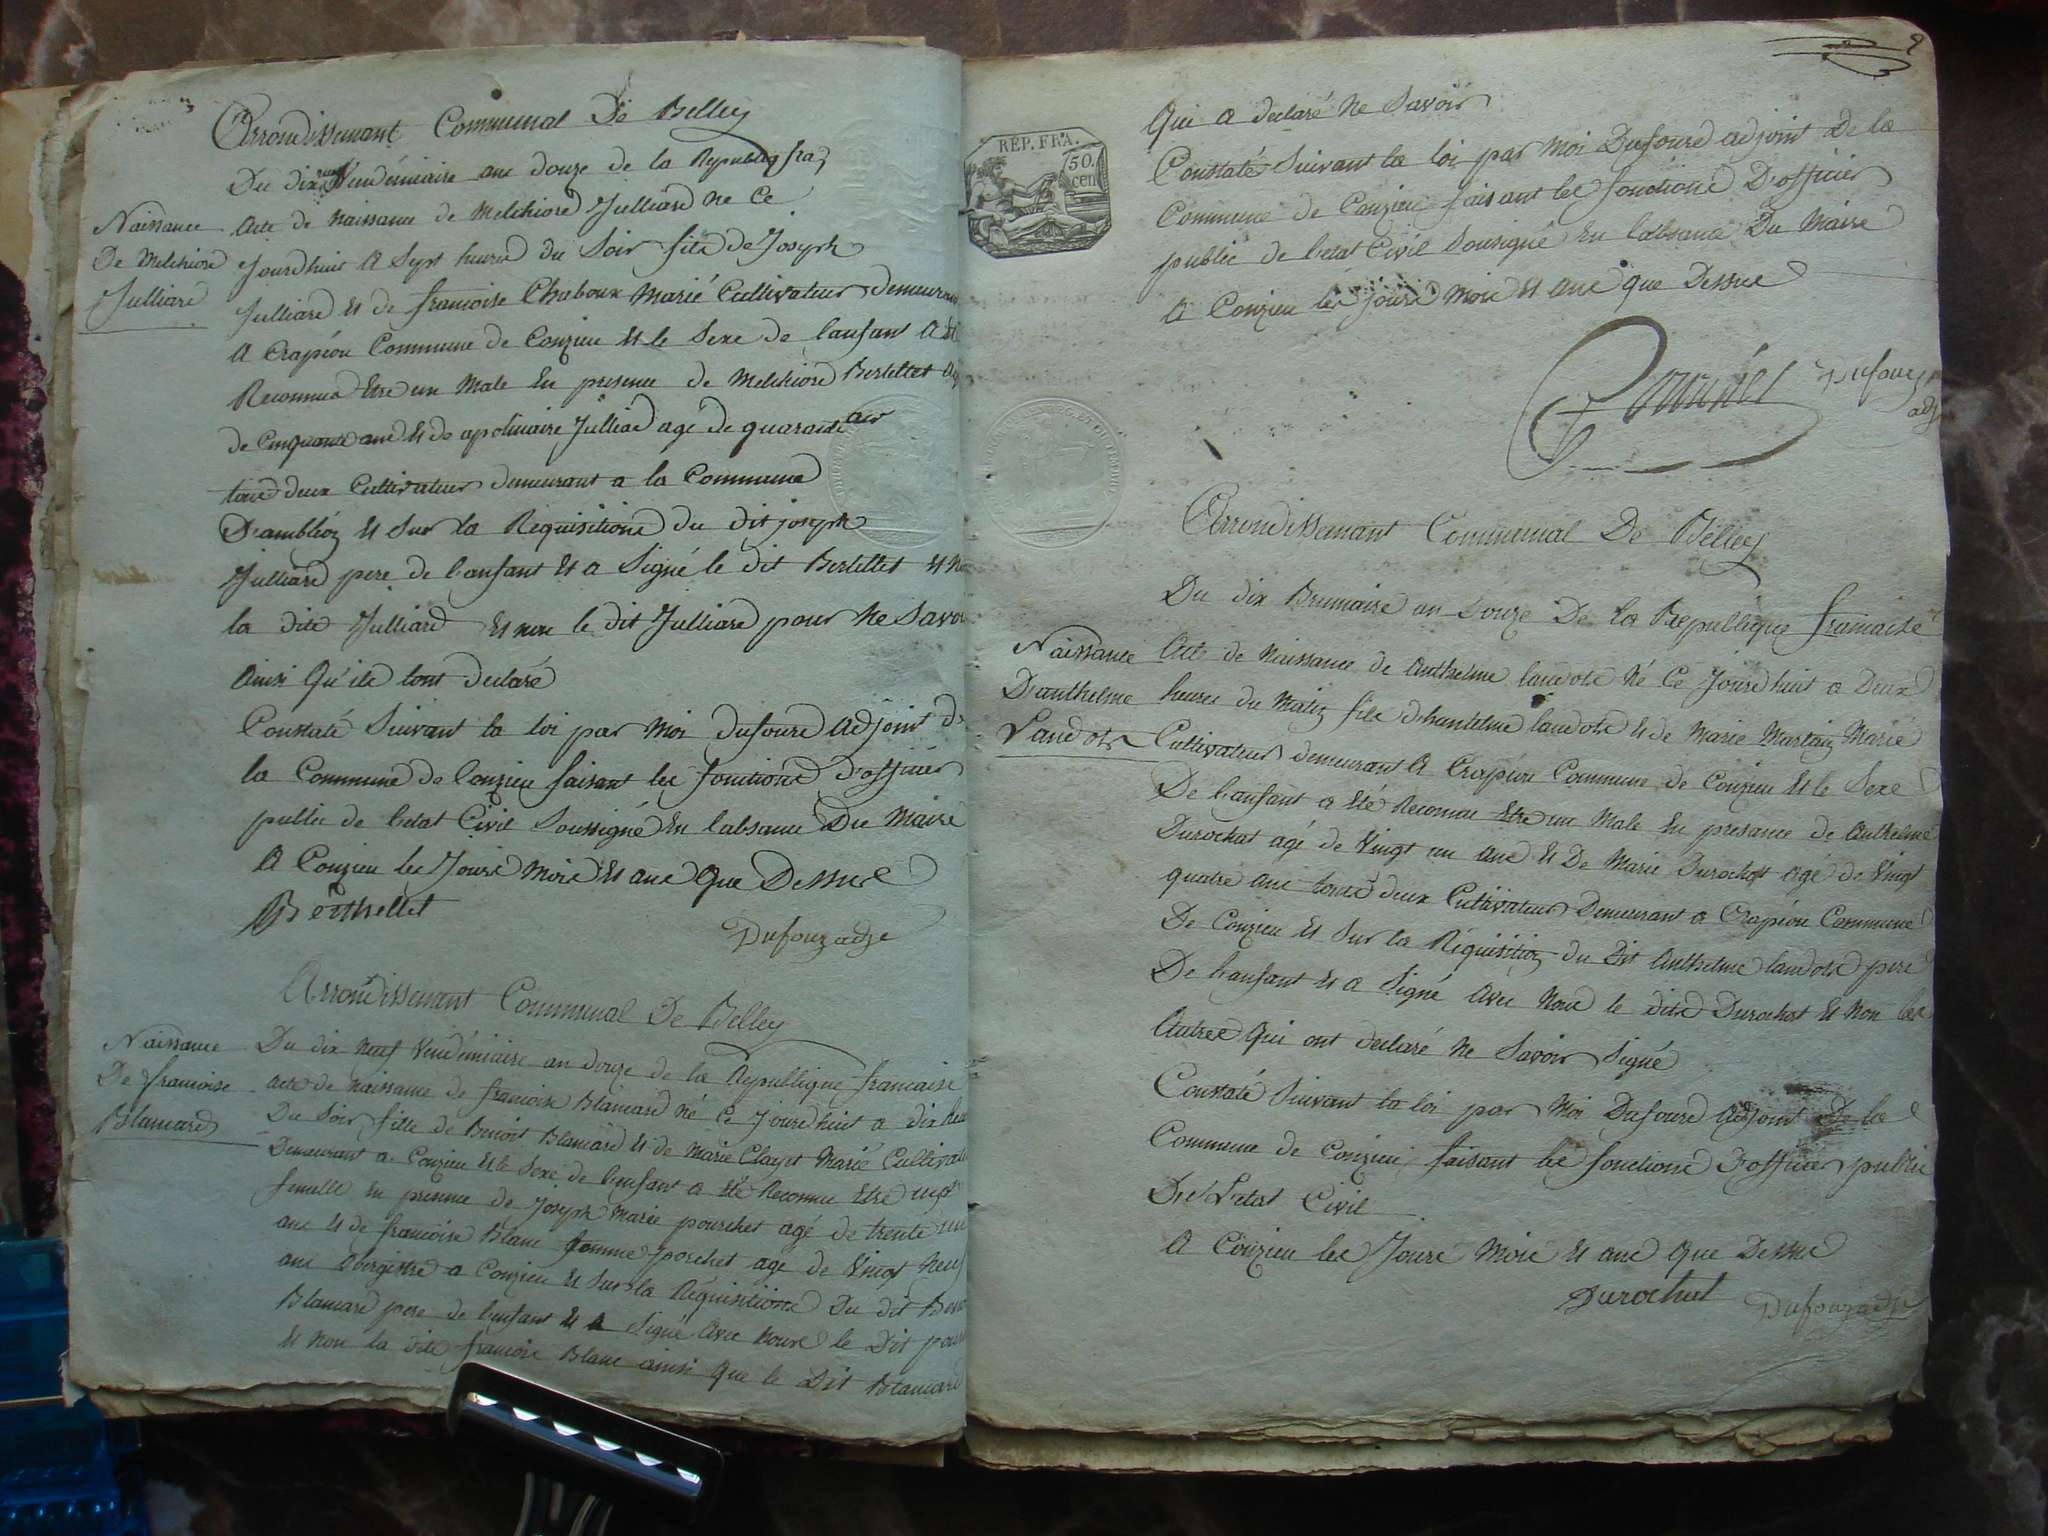 Arrondissement Communal De Belley
Du dix neuf Vendémiaire an douze de la Republiq fra
Naissance
De Melchiore
Julliard
Acte de naissance de Melchiore Julliard ne Ce
Jourdhuit a Sept heures du Soir fils de Joseph
Julliard et de francoise Chaboux Marié Cultivateur demeurant
A Crapéou Commune de Conzieu et le Sexe de lanfant A été
Reconnue Etre un Male En presence de Melchiore Bertellet agé
de Cinquante ans et de apolinaire Julliard agé de quarante ans
tous deux Cultivateur demeurant a la Commune
D'ambléon et Sur la Requisitions du dit joseph
Julliard pere de lanfant et a Signé le dit Bertellet et non
la dite Julliard et non le dit Julliard pour ne Savoir
ainsi Qu'ils lont declaré
Constaté Suivant la loi par Moi dufoure adjoint de
la Commune de Conzieu faisant les fonctions d'officier
public de letat Civil Soussigné En labsance Du Maire
A Conzieu les Jours Mois et ans que Dessus
Berthellet
Dufour adje
Arrondissemant Communal De Belley
Naissance
De francoise
Blancard
Du dix neuf Vendémiaire an douze de la Republique francaise
acte de naissance de francoise Blancard né Ce Jourdhuit a dix heu
Du Soir fille de Benoit Blancard et de Marie Clayet Marié Cultivate
Demeurant a Conzieu et le Sexe de lenfant a été Reconnue Etre une
femelle En presence de Joseph Marie pourchet agé de trente un
ans et de francoise Blanc femme porchet age de Vingt neuf
ans aubergistre a Conzieu et Sur la Requisitions Du dit Benoit
Blancard pere de lenfant et a Signé Avec nous le Dit pour
et non la dite francoise Blanc ainsi que le Dit Blancard
9
REP. FRA.
50.
cen
Qui a declaré ne Savoir
Constaté Suivant la loi par Moi Dufoure adjoint De la
Commune de Conzieu faisant les fonctions D'officier
public de letat Civil Sousigné En labsance Du Maire
A Conzieu les jours Mois et ans que Dessus
Dufour
adj
Arrondissemant Communal De Belley
Du dix Brumaire an Douze De la Republique francaise
Naissance
D'anthelme
Landots
Acte de Naissance de Anthelme landots né Ce Jourdhuit a Deux
heures du Matin fils dhantelme landots et de Marie Martin Marié
Cultivateur demeurant A Crapéou Commune de Conzieu et le Sexe
De lanfant a été Reconnu Etre un Male En presance de Anthelme
Durochat agé de Vingt un ans et De Marie Durochat agé de Vingt
quatre ans touts deux Cultivateur Demeurant a Crapéou Commune
De Conzieu et Sur la Requisition du Dit Anthelme landots pere
De lanfant et a Signé Avec Nous le dits Durochat et Non les
Autres Qui ont declaré ne Savoir Signé
Constaté Suivant la loi par Moi Dufoure adjoint De la
Commune de Conzieu faisant les fonctions D'officier public
De Letat Civil
A Conzieu les Jours Mois et ans que Dessus
Durochat
Dufour adje